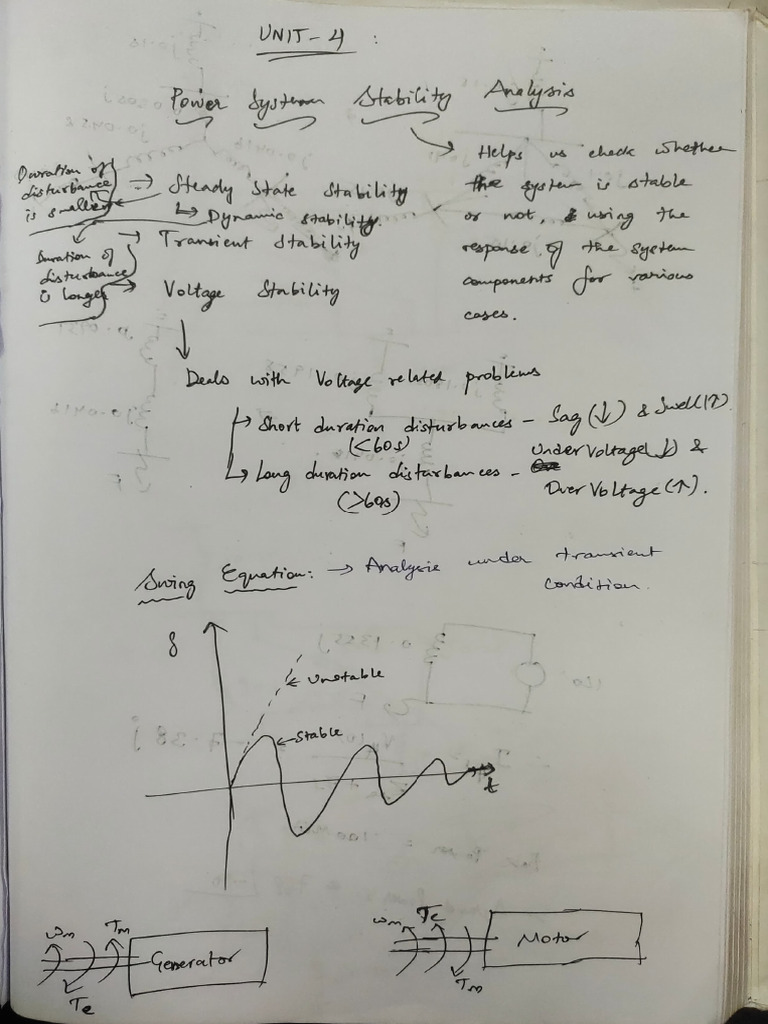 UNIT-4 :
Power System Stability Analysis
→ Helps us check whether
the system is stable
or not, using the
response of the system
components for various
cases.
Duration of
disturbance
is smaller
→ Steady State Stability
↳ Dynamic stability.
Duration of
disturbance
is longer
→ Transient Stability
→ Voltage Stability
↓
Deals with Voltage related problems
↳ Short duration disturbances - Sag(↓) & Swell(↑).
(<60s)
↳ Long duration disturbances - Under Voltage(↓) &
(>60s) Over Voltage(↑).
Swing Equation: → Analysis under transient
condition.
δ
← Unstable
← Stable
t
ωm Tm Generator
Te
ωm Te Motor
Tm